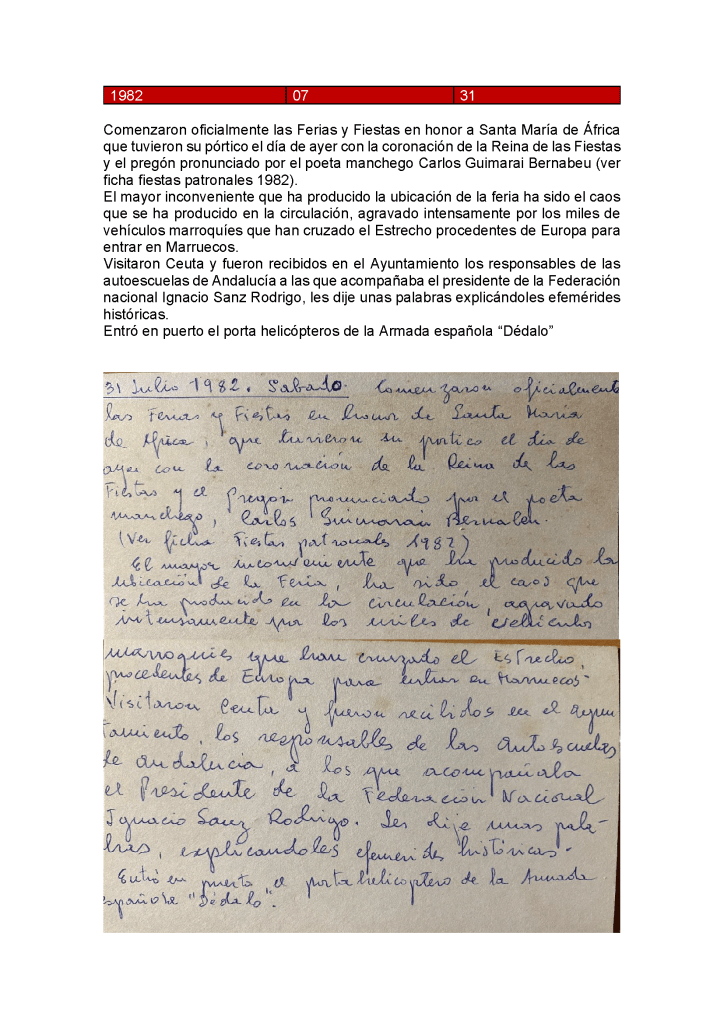 1982 07 31
Comenzaron oficialmente las Ferias y Fiestas en honor a Santa María de África
que tuvieron su pórtico el día de ayer con la coronación de la Reina de las Fiestas
y el pregón pronunciado por el poeta manchego Carlos Guimarai Bernabeu (ver
ficha fiestas patronales 1982).
El mayor inconveniente que ha producido la ubicación de la feria ha sido el caos
que se ha producido en la circulación, agravado intensamente por los miles de
vehículos marroquíes que han cruzado el Estrecho procedentes de Europa para
entrar en Marruecos.
Visitaron Ceuta y fueron recibidos en el Ayuntamiento los responsables de las
autoescuelas de Andalucía a las que acompañaba el presidente de la Federación
nacional Ignacio Sanz Rodrigo, les dije unas palabras explicándoles efemérides
históricas.
Entró en puerto el porta helicópteros de la Armada española “Dédalo”
31 Julio 1982. Sabado. Comenzaron oficialmente
las Ferias y Fiestas en honor de Santa María
de Africa, que tuvieron su portico el día de
ayer con la coronación de la Reina de las
Fiestas y el Pregón pronunciado por el poeta
manchego, Carlos Guimarai Bernabeu.
(Ver ficha Fiestas patronales 1982)
El mayor inconveniente que ha producido la
ubicación de la Feria, ha sido el caos que
se ha producido en la circulación, agravado
intensamente por los miles de vehiculos
marroquies que han cruzado el Estrecho,
procedentes de Europa para entrar en Marruecos-
Visitaron Ceuta y fueron recibidos en el ayun
tamiento, los responsables de las Autoescuelas
de andalucia, a los que acompañaba
el Presidente de la Federación Nacional
Ignacio Sanz Rodrigo. Les dije unas pala-
bras, explicandoles efemerides históricas.
Entró en puerto el portahelicoptero de la Armada
española "Dédalo".